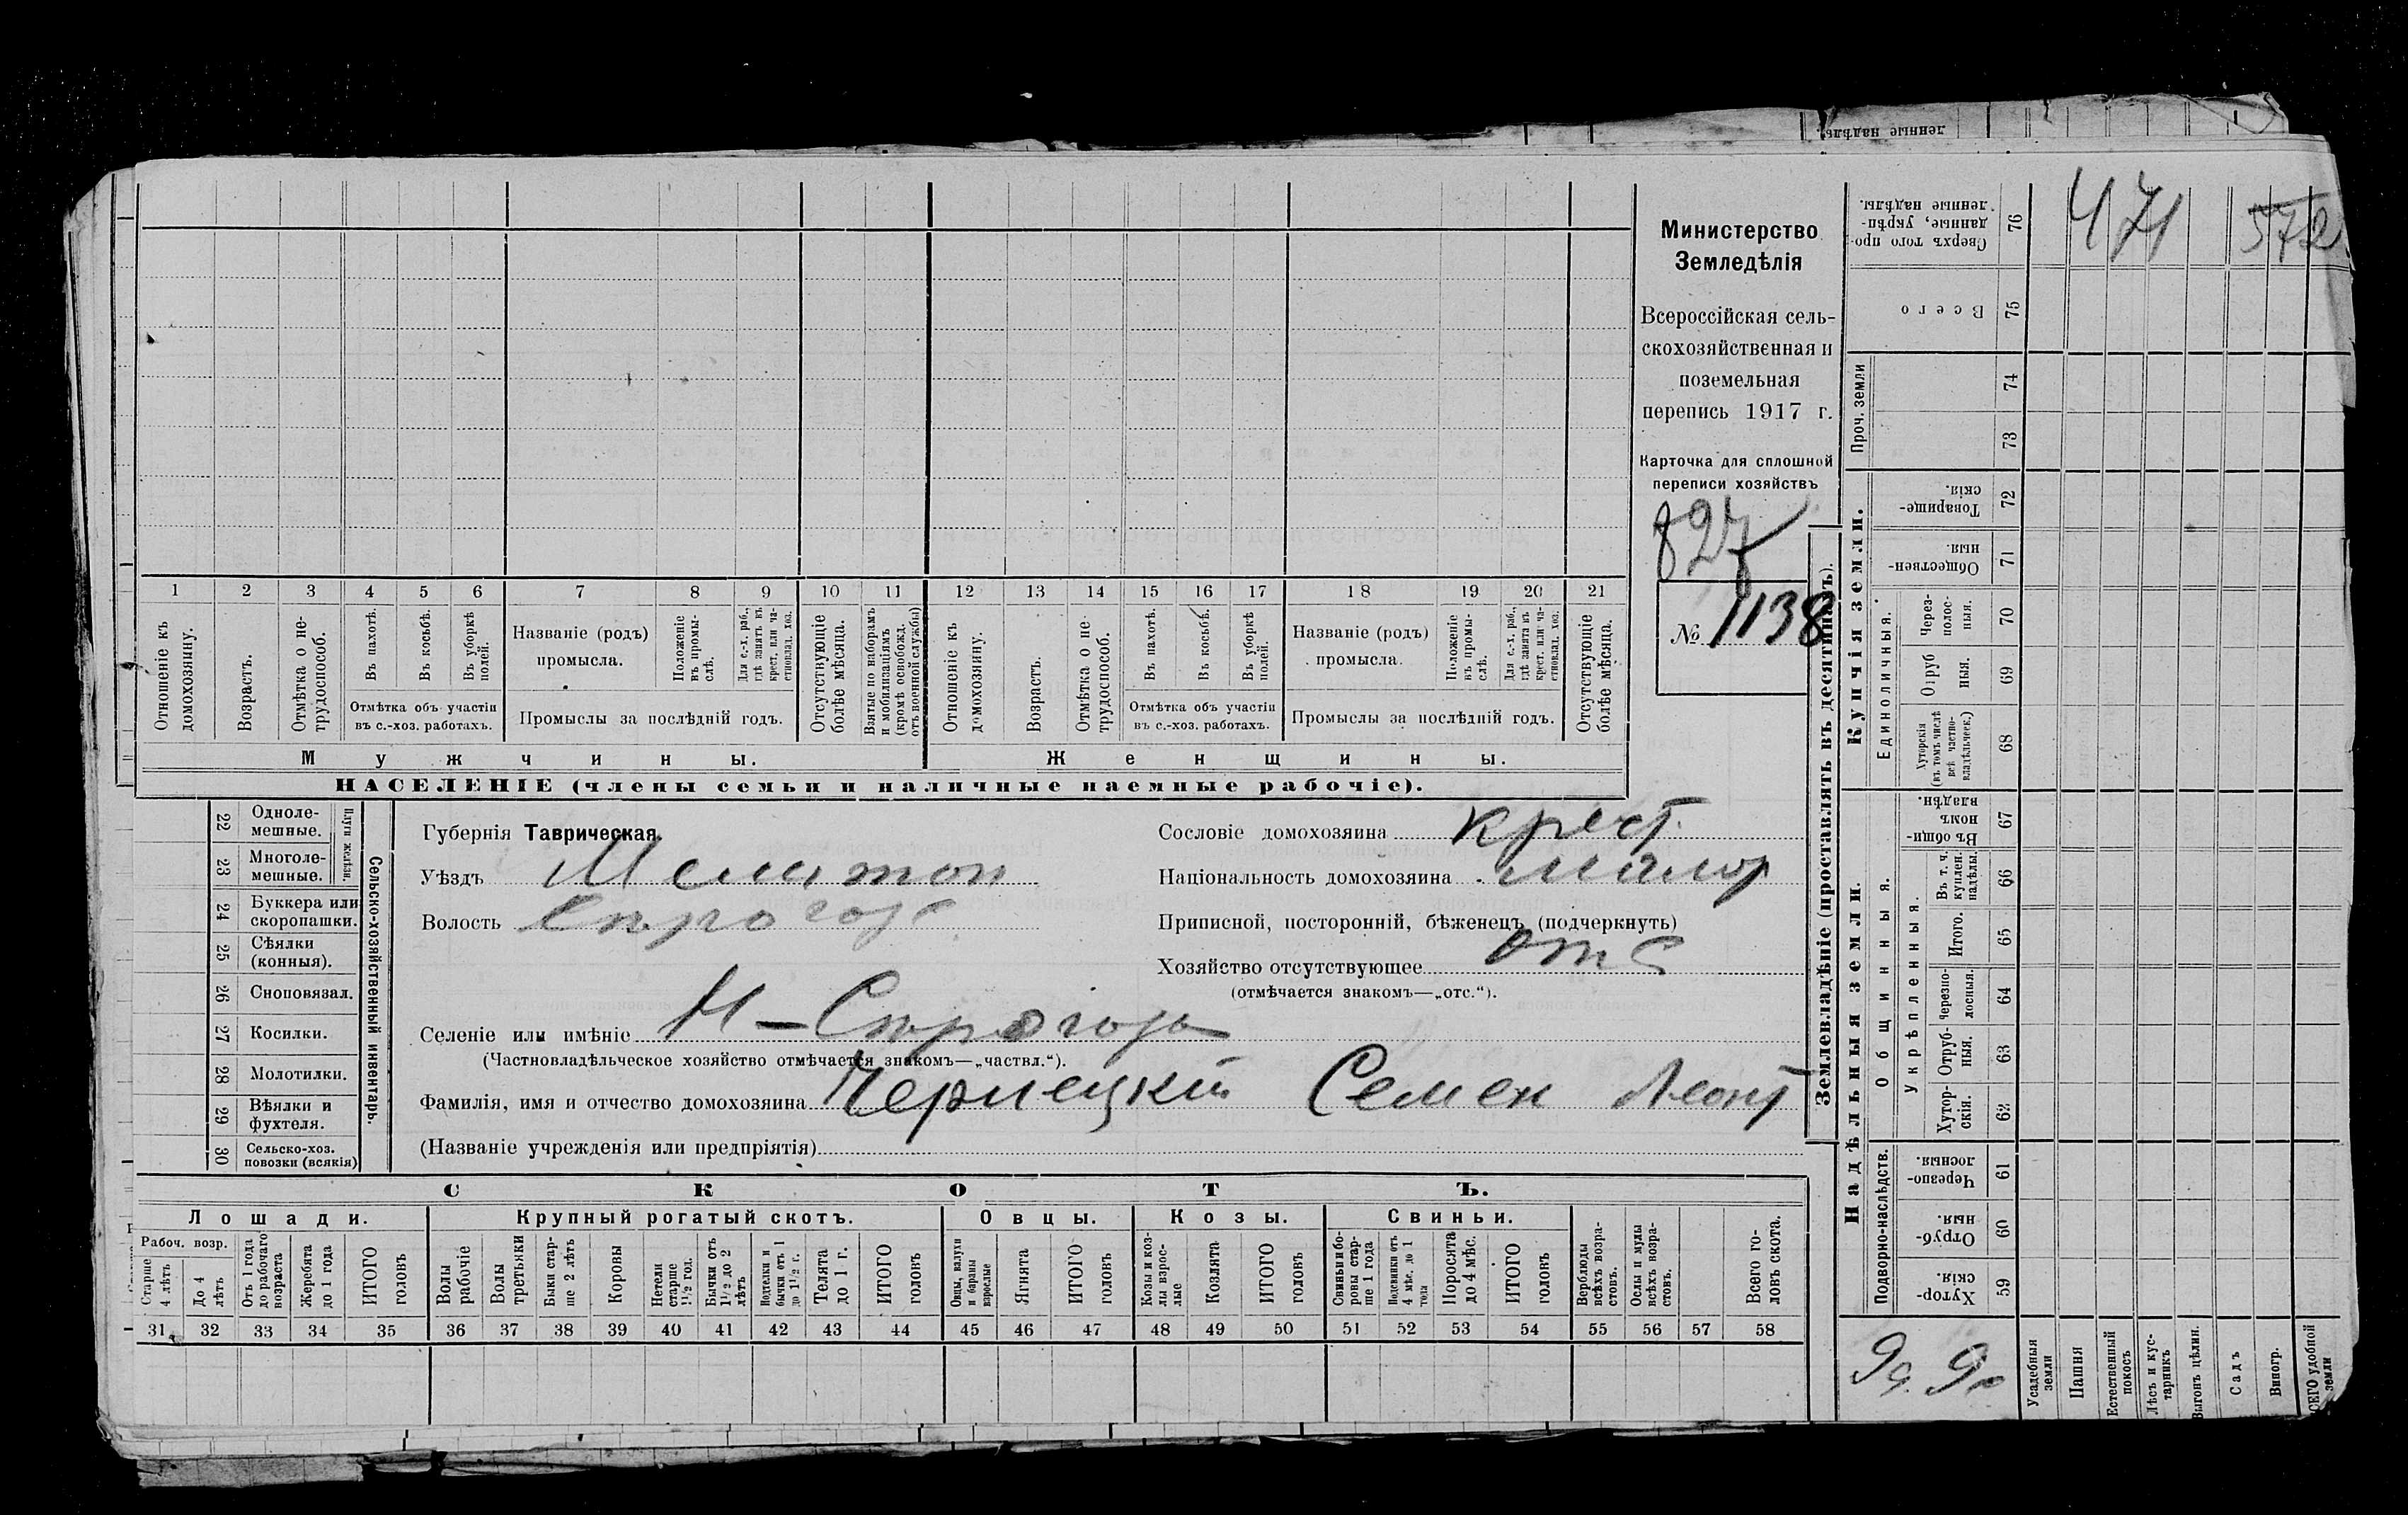 ленные надѣлы.
Министерство
Земледѣлія
Всероссійская сель-
скохозяйственная и
поземельная
перепись 1917 г.
Карточка для сплошной
переписи хозяйствъ
827
№ 1138
1 2 3 4 5 6 7 8 9 10 11 12 13 14 15 16 17 18 19 20 21
Отношеніе къ домохозяину.
Возрастъ.
Отмѣтка о не-трудоспособ.
Въ пахотѣ.
Въ косьбѣ.
Въ уборкѣ полей.
Отмѣтка объ участіи
въ с.-хоз. работахъ.
Названіе (родъ)
промысла.
Положеніе въ промы-слѣ.
Для с.-х. раб., гдѣ занятъ въ крест. или ча-стновлад. хоз.
Промыслы за послѣдній годъ.
Отсутствующіе болѣе мѣсяца.
Взятые по наборамъ и мобилизаціямъ (кромѣ освобожд. отъ военной службы)
Отношеніе къ домохозяину.
Возрастъ.
Отмѣтка о не-трудоспособ.
Въ пахотѣ.
Въ косьбѣ.
Въ уборкѣ полей.
Отмѣтка объ участіи
въ с.-хоз. работахъ.
Названіе (родъ)
промысла.
Положеніе въ промы-слѣ.
Для с.-х. раб., гдѣ занята въ крест. или ча-стновлад. хоз.
Промыслы за послѣдній годъ.
Отсутствующіе болѣе мѣсяца.
Мужчины. Женщины.
НАСЕЛЕНІЕ (члены семьи и наличные наемные рабочіе).
22 Одноле-мешные.
23 Многоле-мешные.
Плуги желѣзн.
24 Буккера или скоропашки.
25 Сѣялки (конныя).
26 Сноповязал.
27 Косилки.
28 Молотилки.
29 Вѣялки и фухтеля.
30 Сельско-хоз. повозки (всякія)
Сельско-хозяйственный инвентарь.
Губернія Таврическая.
Уѣздъ Мелитоп
Волость
Селеніе или имѣніе
(Частновладѣльческое хозяйство отмѣчается знакомъ—„частвл.“).
Фамилія, имя и отчество домохозяина Чернецкій Семен Леонт
(Названіе учрежденія или предпріятія)
Сословіе домохозяина крест.
Національность домохозяина малор
Приписной, посторонній, бѣженецъ (подчеркнуть)
Хозяйство отсутствующее отс
(отмѣчается знакомъ—„отс.“).
СКОТЪ.
Лошади. Крупный рогатый скотъ. Овцы. Козы. Свиньи.
Рабоч. возр.
Старше 4 лѣтъ
До 4 лѣтъ
Отъ 1 года до рабочаго возраста
Жеребята до 1 года
ИТОГО головъ
Волы рабочіе
Волы третьяки
Быки стар-ше 2 лѣтъ
Коровы
Нетели старше 1½ год.
Бычки отъ 1½ до 2 лѣтъ
Подтелки и бычки отъ 1 до 1½ г.
Телята до 1 г.
ИТОГО головъ
Овцы, валухи и бараны взрослые
Ягнята
ИТОГО головъ
Козы и коз-лы взрос-лые
Козлята
ИТОГО головъ
Свиньи и бо-ровы стар-ше 1 года
Подсвинки отъ 4 мѣс. до 1 года
Поросята до 4 мѣс.
ИТОГО головъ
Верблюды всѣхъ возра-стовъ.
Ослы и мулы всѣхъ возра-стовъ.
Всего го-ловъ скота.
31 32 33 34 35 36 37 38 39 40 41 42 43 44 45 46 47 48 49 50 51 52 53 54 55 56 57 58
Землевладѣніе (проставлять въ десятинахъ).
471 572
76 Сверхъ того про-данные, укрѣп-ленные надѣлы.
75 Всего
74
73
Проч. земли
72 Товарище-скія.
71 Обществен-ныя.
70 Через-полос-ныя.
69 Отруб-ныя.
68 Хуторскія (въ томъ числѣ всѣ частно-владѣльческ.)
Единоличныя.
Купчія земли.
67 Въ общин-номъ владѣн.
66 Въ т. ч. куплен. надѣлы.
65 Итого.
64 Черезпо-лосныя.
63 Отруб-ныя.
62 Хутор-скія.
Укрѣпленныя.
Общинныя.
61 Черезпо-лосныя
60 Отруб-ныя.
59 Хутор-скія.
Подворно-наслѣдств.
Надѣльныя земли.
Усадебныя земли
Пашня
Естественный покосъ
Лѣсъ и кус-тарникъ
Выгонъ цѣлин.
Садъ
Виногр.
ВСЕГО удобной земли